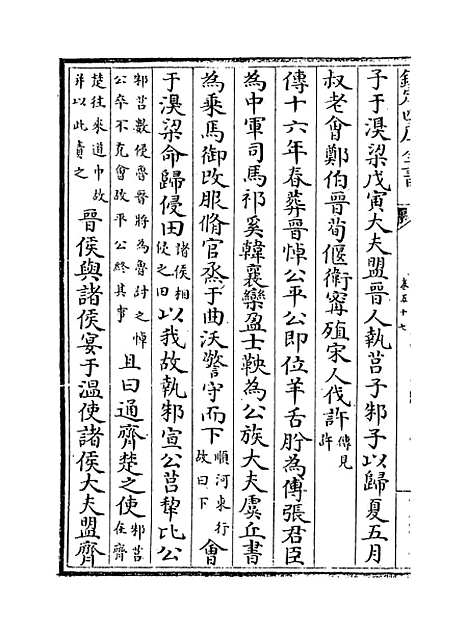 欽定四庫全書
卷五十七
子于溴梁戊寅大夫盟晉人執莒子邾子以歸夏五月
叔老會鄭伯晉荀偃衛甯殖宋人伐許傳見許
傳十六年春葬晉悼公平公即位羊舌肸為傅張君臣
為中軍司馬祁奚韓襄欒盈士鞅為公族大夫虞丘書
為乘馬御改服脩官烝于曲沃警守而下順河東行故曰下會
于溴梁命歸侵田諸侯相侵之田以我故執邾宣公莒犂比公
邾莒數侵魯晉將為魯討之悼公卒不克會故平公終其事且曰通齊楚之使邾莒在齊
楚往來道中故并以此責之晉侯與諸侯宴于溫使諸侯大夫盟齊